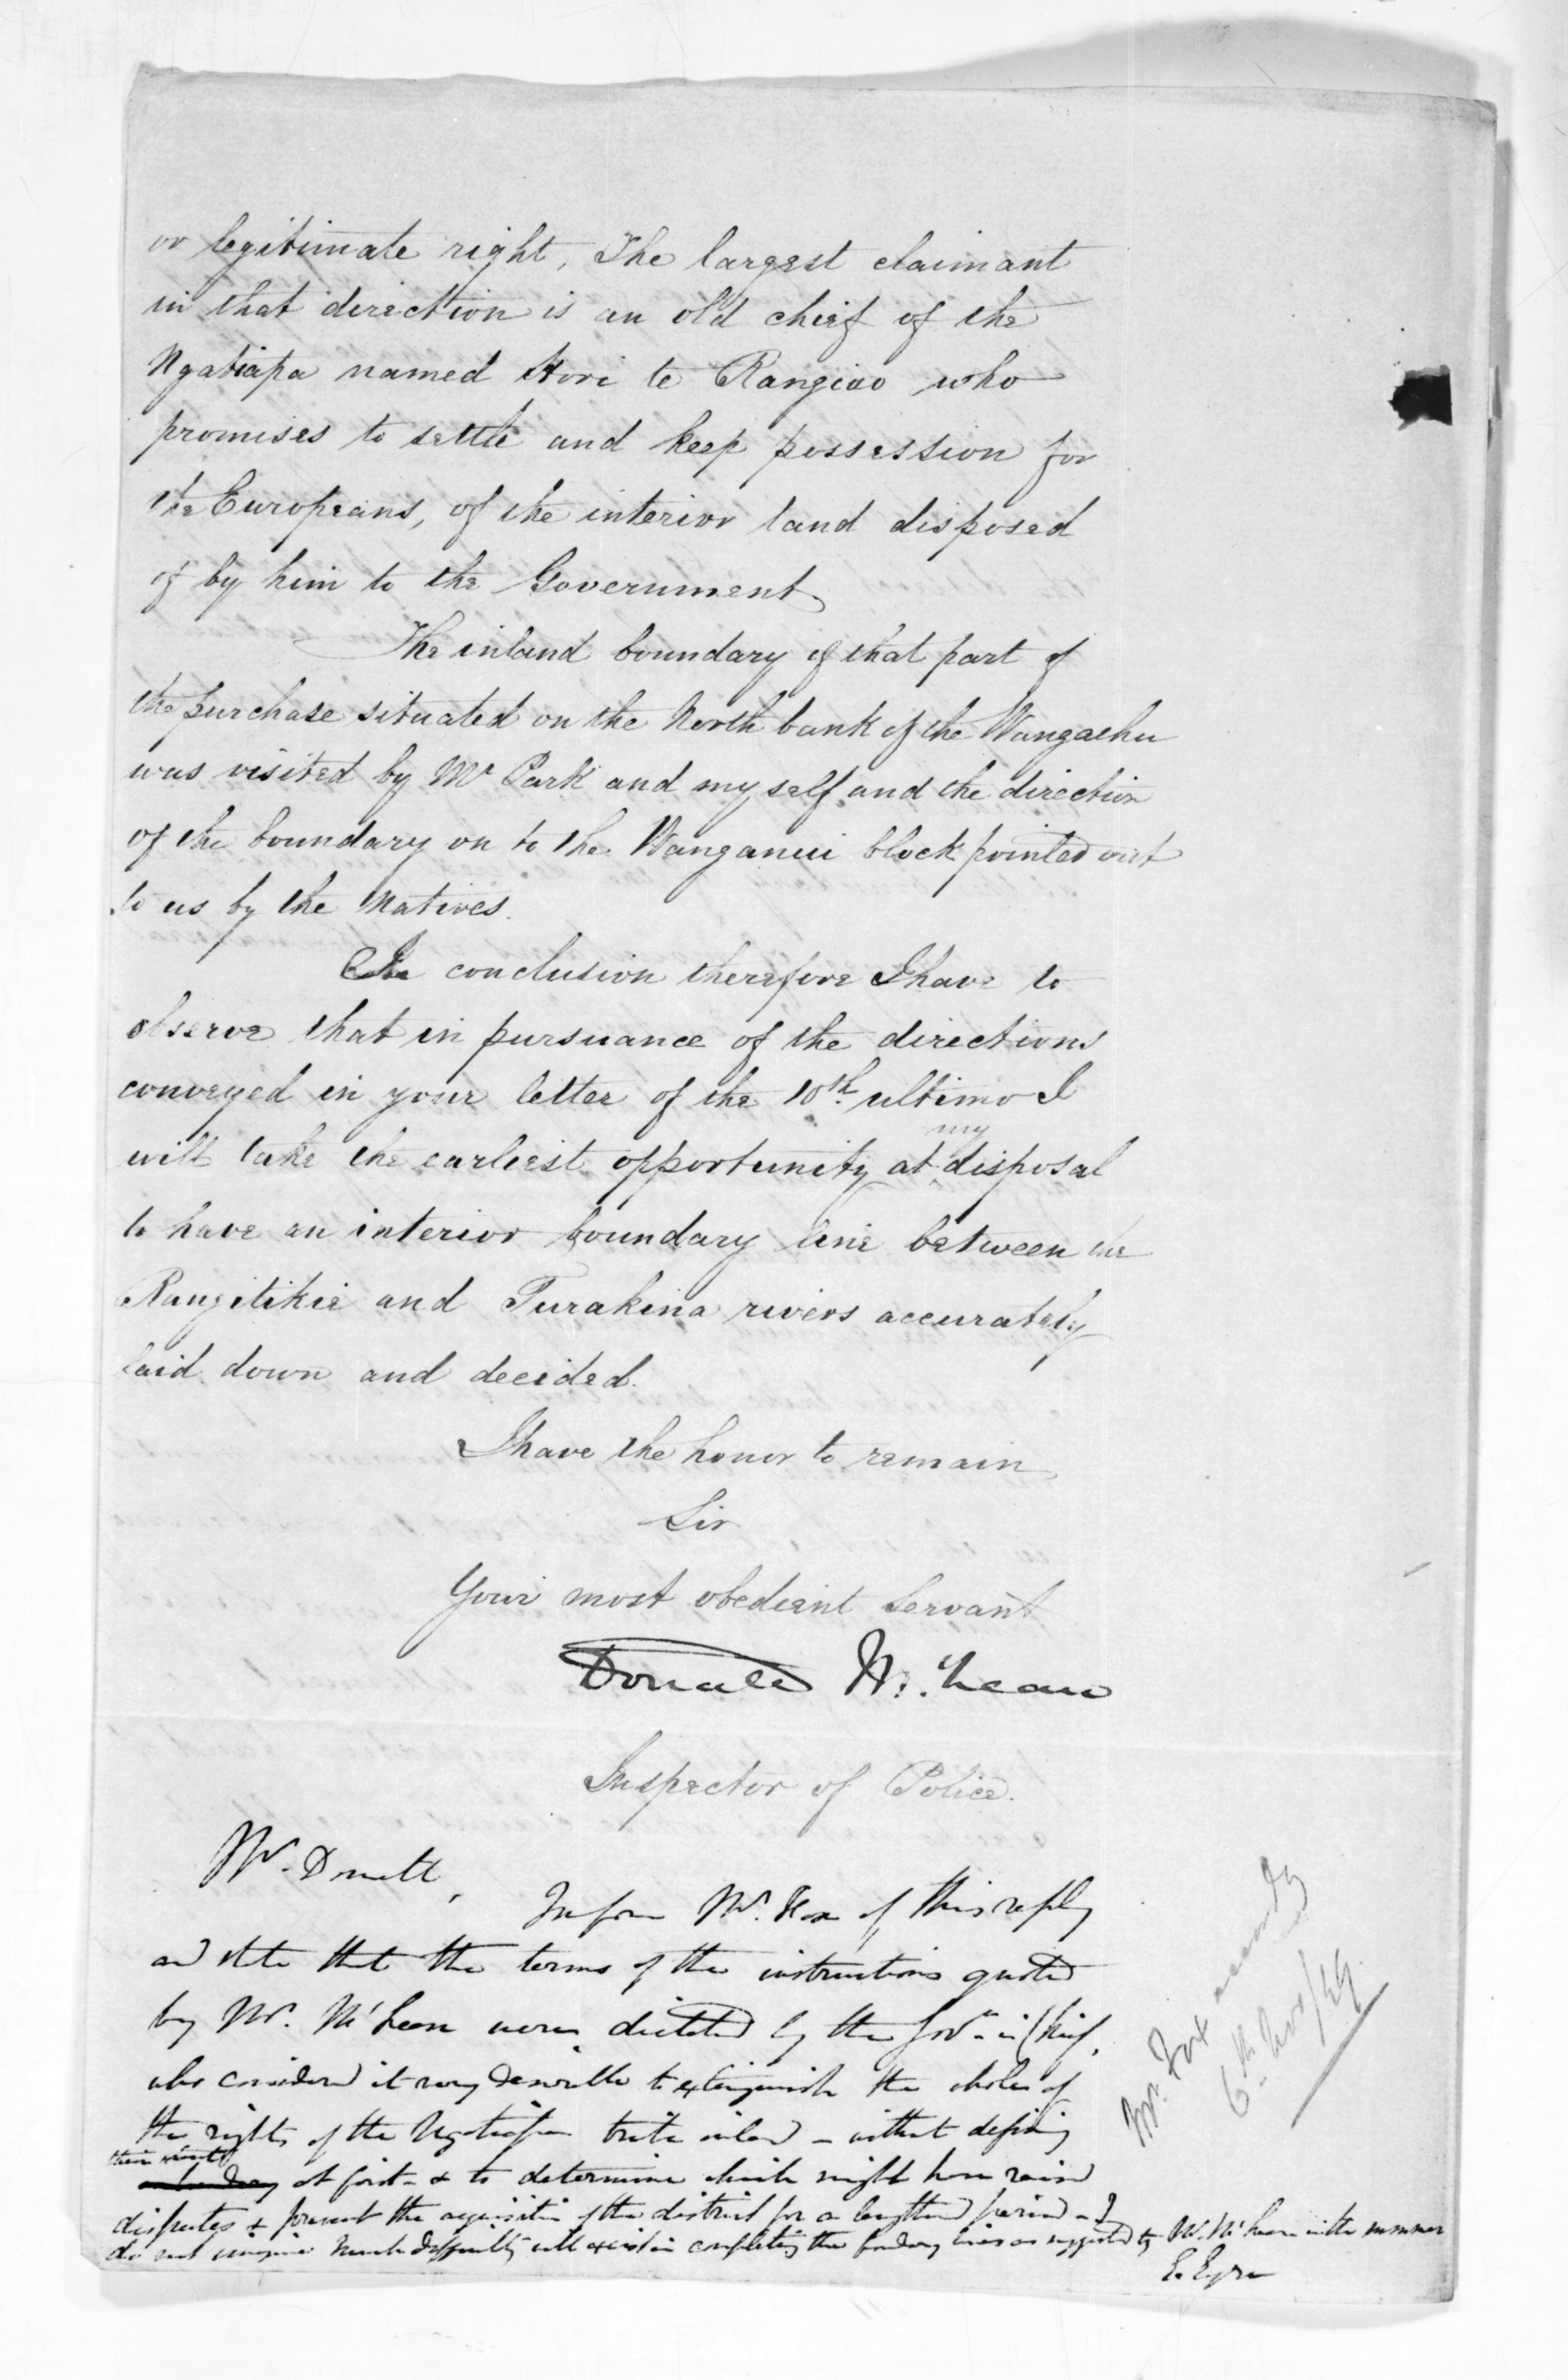 or legitimate right, The largest claimant
in that direction is an old chief of the
Ngatiapa named Hori te Rangiao who
promises to settle and keep possession for
the Europeans, of the interior land disposed
of by him to the Government
The inland boundary of that part of
the purchase situated on the North bank of the Wangaehu
was visited by Mr Park and myself and the direction
of the boundary on to the Wanganui block pointed out
to us by the Natives.
In conclusion therefore I have to
observe that in pursuance of the directions
conveyed in your letter of the 10th ultimo I
will take the earliest opportunity at my disposal
to have an interior boundary line between the
Rangitikie and Turakina rivers accurately
laid down and decided.
I have the honor to remain
Sir
Your most obedient Servant
Donald McLean
Inspector of Police.
Mr.
Inform Mr. Fox of this reply
and state that the terms of the instructions quoted
by Mr. McLean were dictated by the Govr in Chief,
who considered it very desirable to extinguish the whole of
the rights of the Ngatiapa tribe inland – without defining
their
at first – & to determine which might have raised
disputes & prevent the acquisition of the district for a lengthened period – I
do not imagine much difficulty will exist in completing the boundary lines as suggested by Mr. McLean in the summer
E. Eyre
Mr. Fox accordg
6th Novr/49.